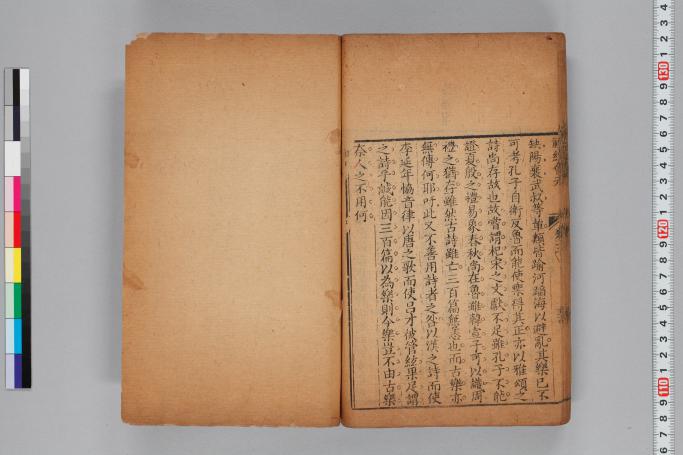 缺陽襄武叔等雖類皆踰河蹈海以避亂其樂已不
可考孔子自衛反魯而能使樂得其正亦以雅頌之
詩尚存故也故嘗謂杞宋之文獻不足雖孔子不能
證夏殷之禮易象春秋尚在魯雖韓宣子可以識周
禮之猶存雖然古詩雖亡三百篇無恙也而古樂亦
無傳何耶吁此又不善用詩者之咎以漢之詩而使
李延年協音律以唐之歌而使呂才被管絃果足謂
之詩乎誠能因三百篇以為樂則今樂豈不由古樂
奈人之不用何